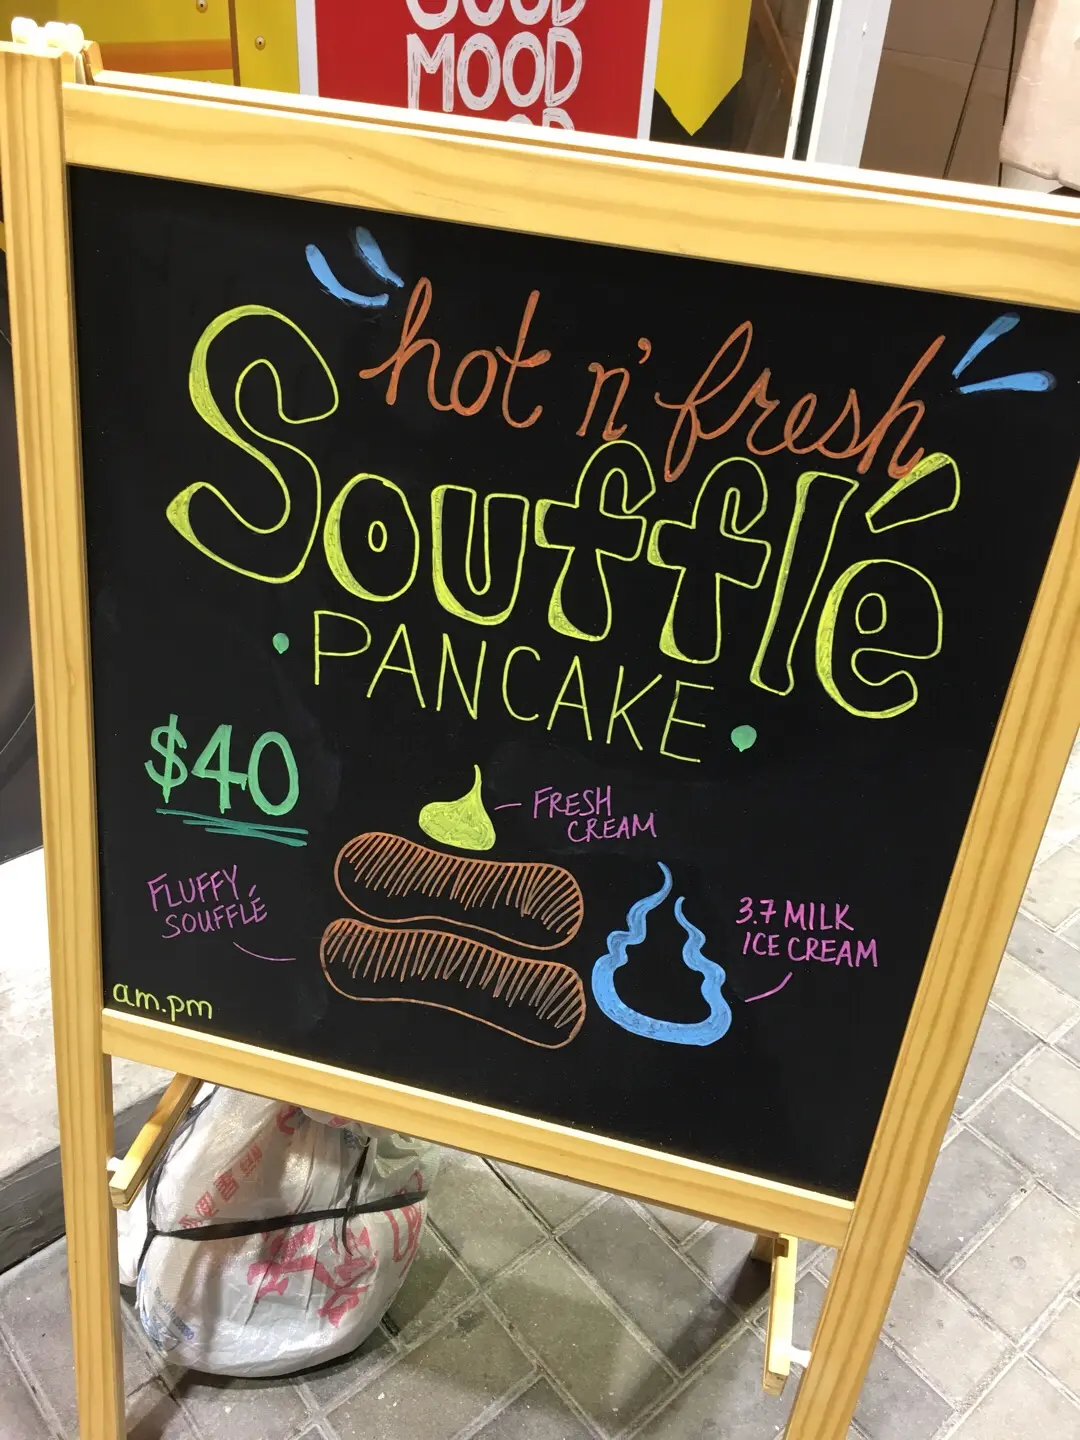 GOOD
MOOD
hot n' fresh
Soufflé
PANCAKE
$40
FRESH
CREAM
FLUFFY
SOUFFLÉ
3.7 MILK
ICE CREAM
am.pm